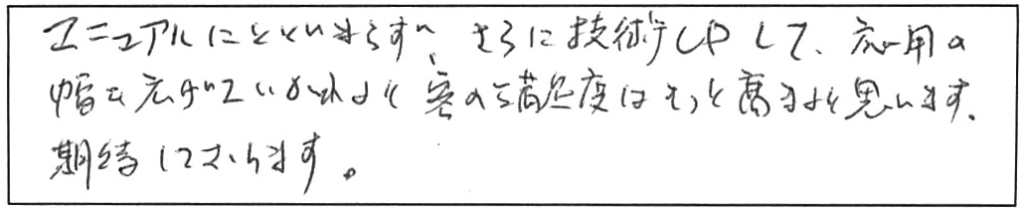 マニュアルにとどまらず、さらに技術UPして、応用の
幅を広げていかれると客の満足度はもっと高まると思います。
期待しております。